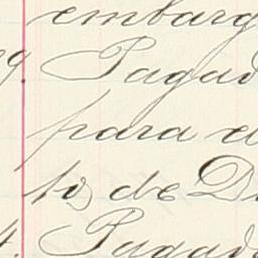 embarg
9. Pagad
para e
to de D
4. Pagad